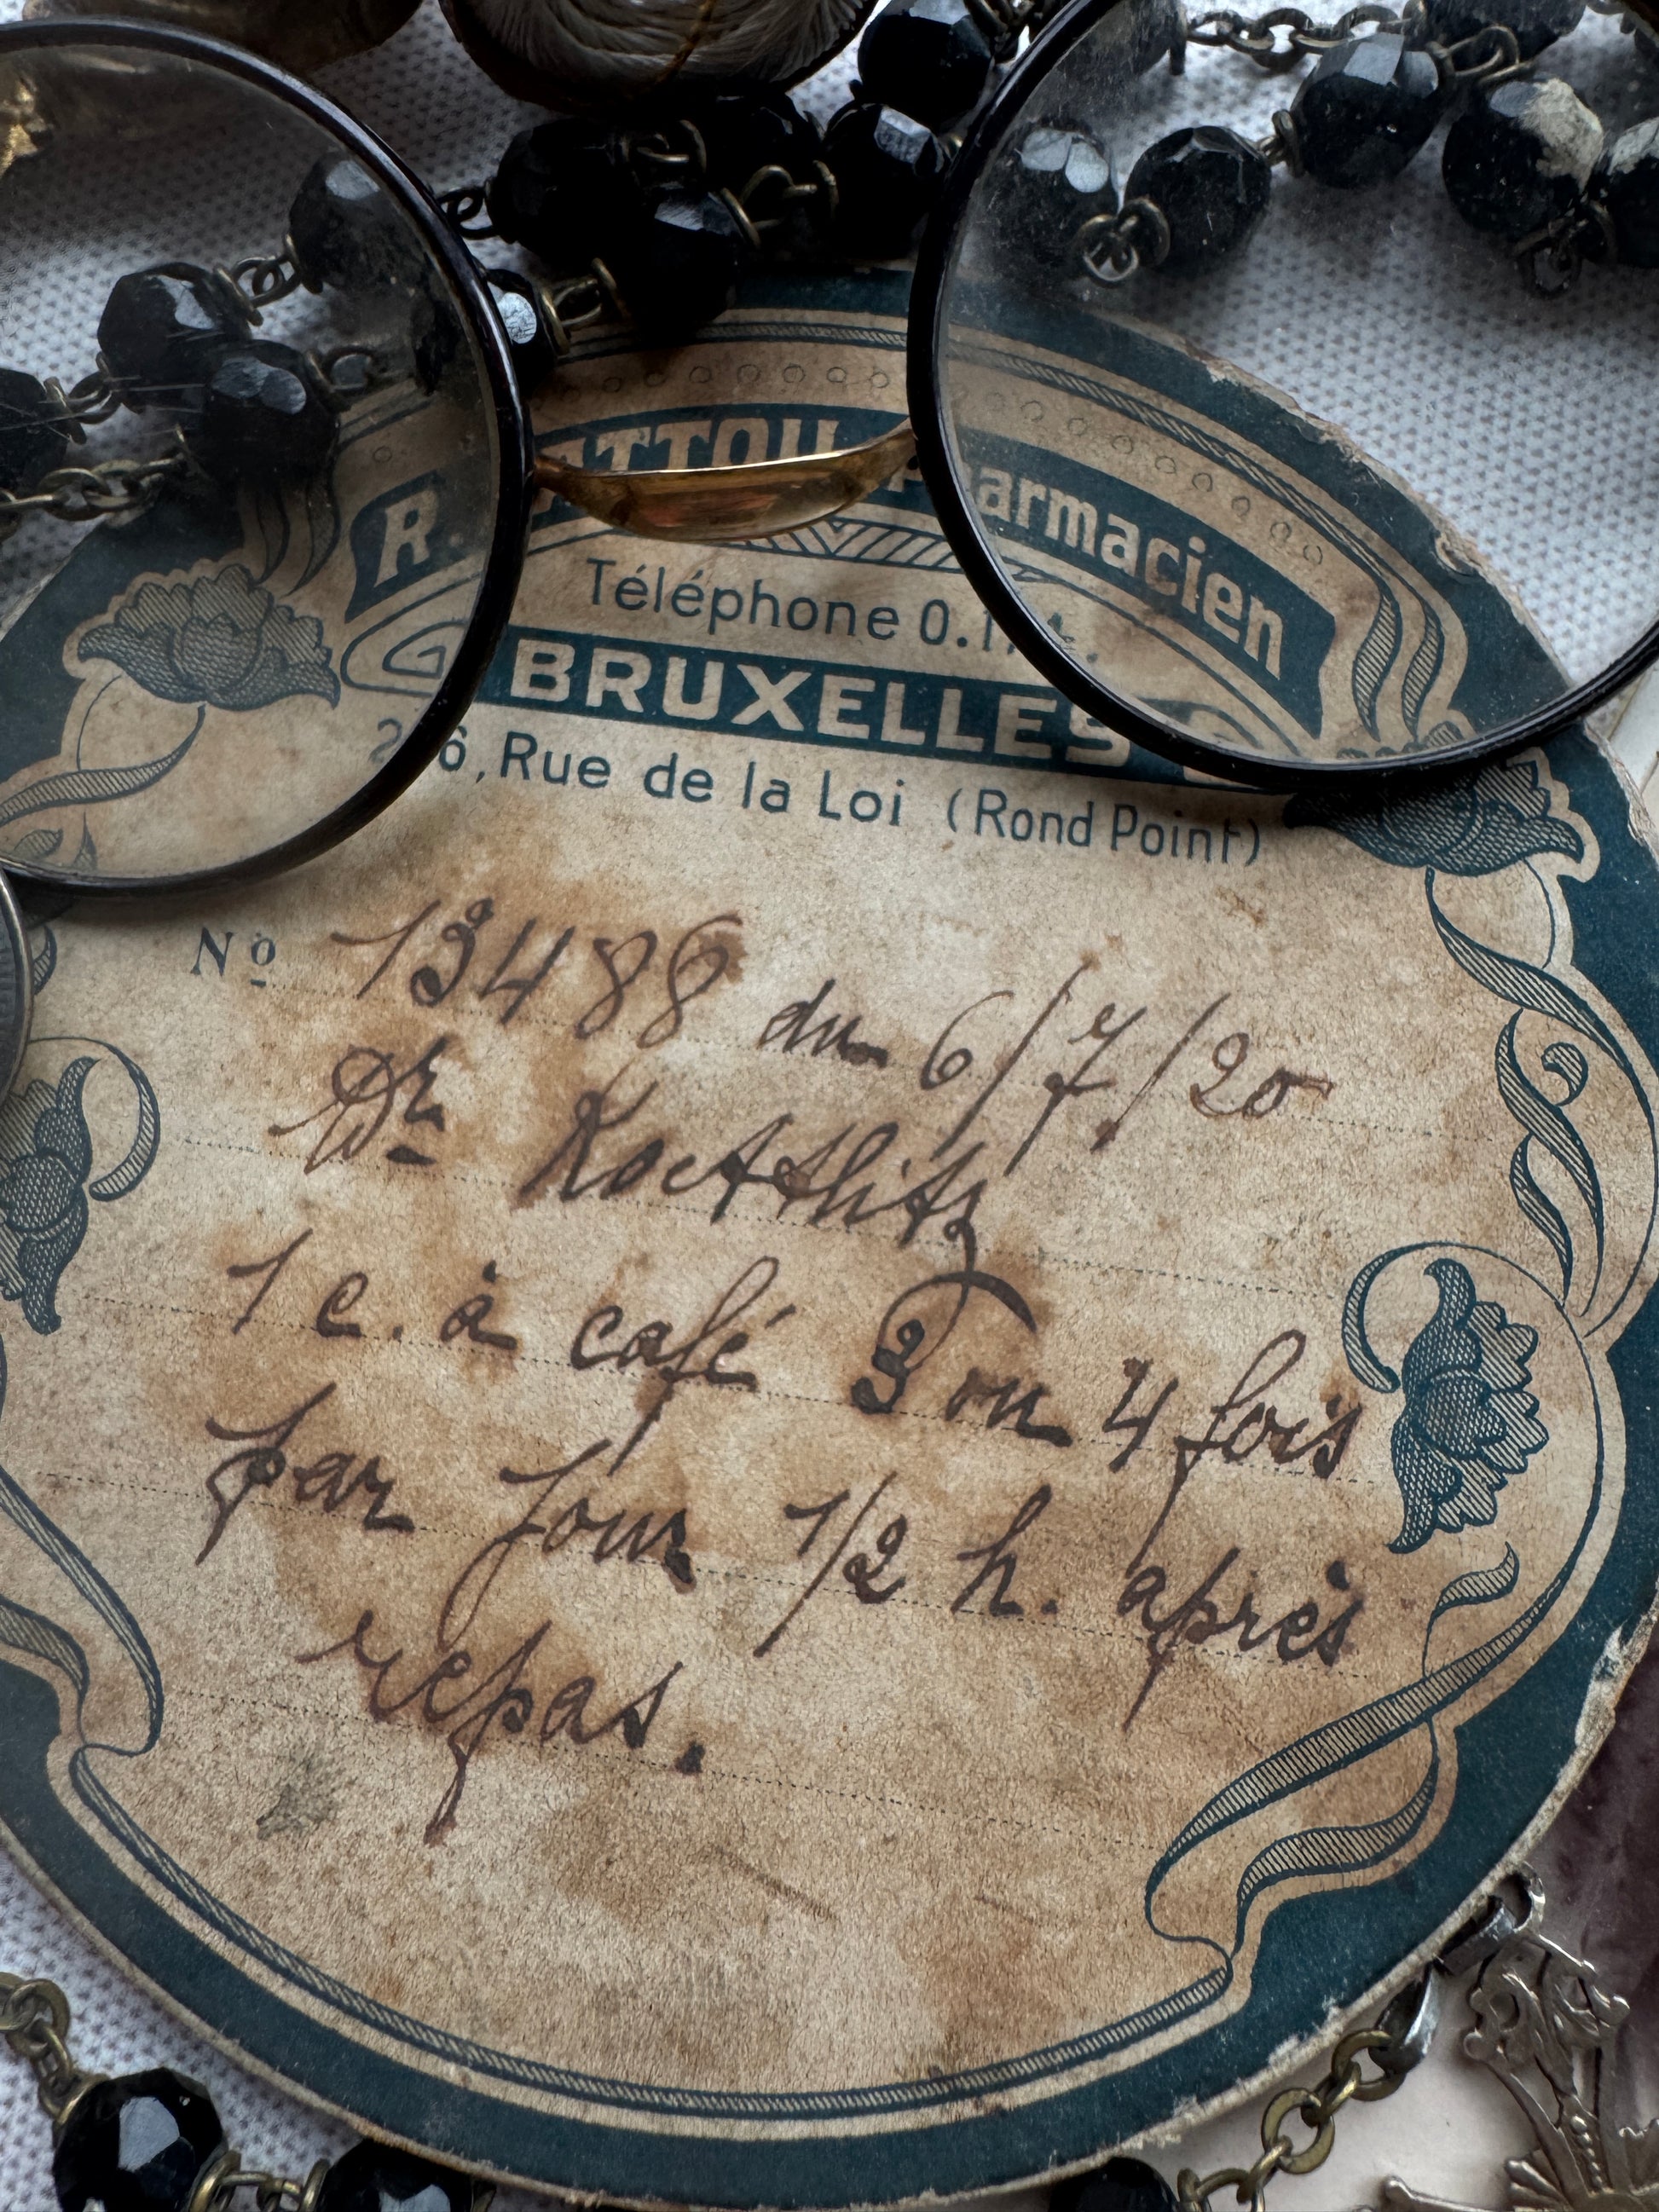 R. Pharmacien
Téléphone 0.
BRUXELLES
Rue de la Loi (Rond Point)
Nº 13488 du 6/7/20
Dr Koettlitz
1 c. à café 3 ou 4 fois
par jour 1/2 h. après
repas.